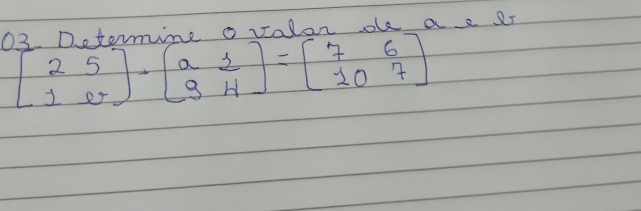 03 Determine o valor de a e b
[2 5] . [a 1] = [7 6]
[1 b] [9 4] [10 7]